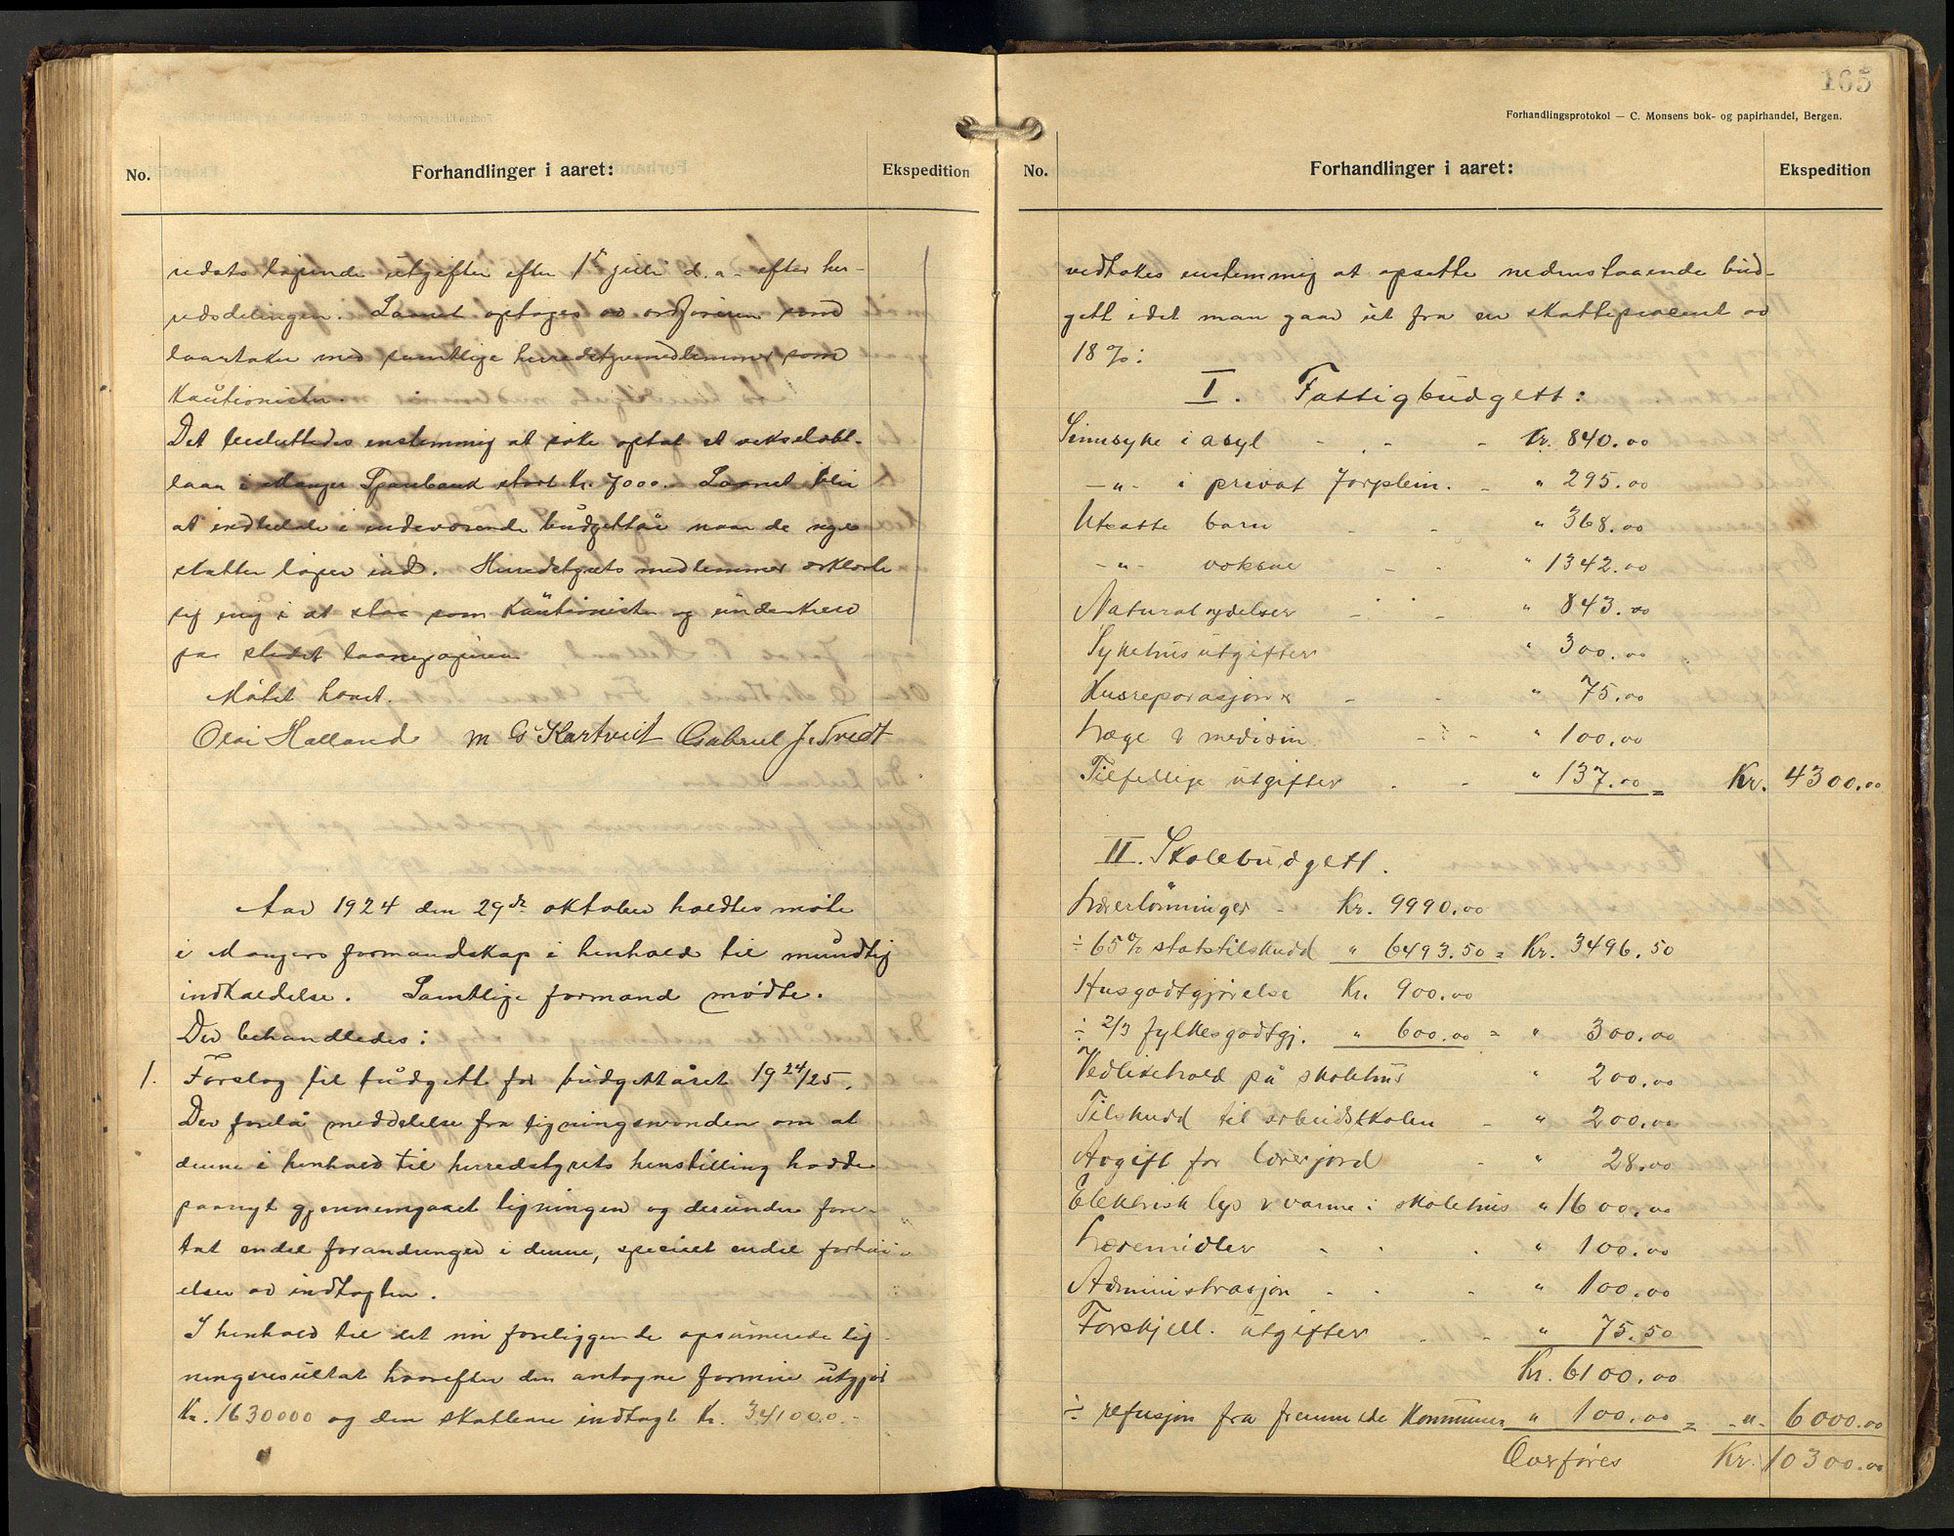 No.
Forhandlinger i aaret:
Ekspedition
redets løpende utgifter efter 1ste juli d. a. efter her-
redsdelingen. Laanet optages av ordføreren som
laantaker med samtlige herredstyremedlemmer som
Kautionister.
Det besluttedes enstemmig at søke optat et vekselobl.
laan i Manger Sparebank stort kr. 7000.- Laanet blir
at indbetale i indeværende budgettår naar de nye
skatter løper ind. Herredstyrets medlemmer erklærte
sig enig i at staa som Kautionister og underskrev
paa stedet laanepapirene.
Møtet hævet.
Olai Halland M G Kartveit Gabriel J. Tvedt
Aar 1924 den 29de oktober holdtes møte
i Mangers formandskap i henhold til mundtlig
indkaldelse. Samtlige formænd mødte.
Der behandledes:
1. Forslag til budgett for budgettåret 1924/25.
Der forelå meddelelse fra ligningsnevnden om at
denne i henhold til herredstyrets henstilling hadde
paanyt gjennemgaaet ligningen og derunder fore-
tat endel forandringer i denne, specielt endel forhøi-
elser av indtægten.
I henhold til det nu foreliggende opsumerede lig-
ningsresultat hvorefter den antagne formue utgjør
Kr. 1630000 og den skatbare indtægt Kr. 341000.-
165
Forhandlingsprotokol — C. Monsens bok- og papirhandel, Bergen.
No.
Forhandlinger i aaret:
Ekspedition
vedtokes enstemmig at opsette nedenstaaende bud-
gett idet man gaar ut fra en skatteprosent av
18 %:
I. Fattigbudgett:
Sinnsyke i asyl - - - Kr. 840.00
-"- i privat forplein. - " 295.00
Utsatte barn - - " 368.00
-"- voksne - - " 1342.00
Naturalydelser - - - " 843.00
Sykehusutgifter " 300.00
Husreparasjoner - - " 75.00
Læge & medisin - - - " 100.00
Tilfellige utgifter - - " 137.00 = Kr. 4300.00
II. Skolebudgett.
Lærerlønninger - Kr. 9990.00
÷ 65% statstilskudd " 6493.50 = Kr. 3496.50
Husgodtgjørelse Kr. 900.00
÷ 2/3 fylkesgodtgj. " 600.00 = " 300.00
Vedlikehold på skolehus " 200.00
Tilskudd til arbeidsskolen - " 200.00
Avgift for lærerjord - " 28.00
Elektrisk lys & varme i skolehus " 1600.00
Læremidler - - - " 100.00
Administrasjon - - - " 100.00
Forskjell. utgifter - - " 75.50
Kr. 6100.00
÷ refusjon fra fremmede Kommuner " 100.00 = -"- 6000.00
Overføres Kr. 10300.00